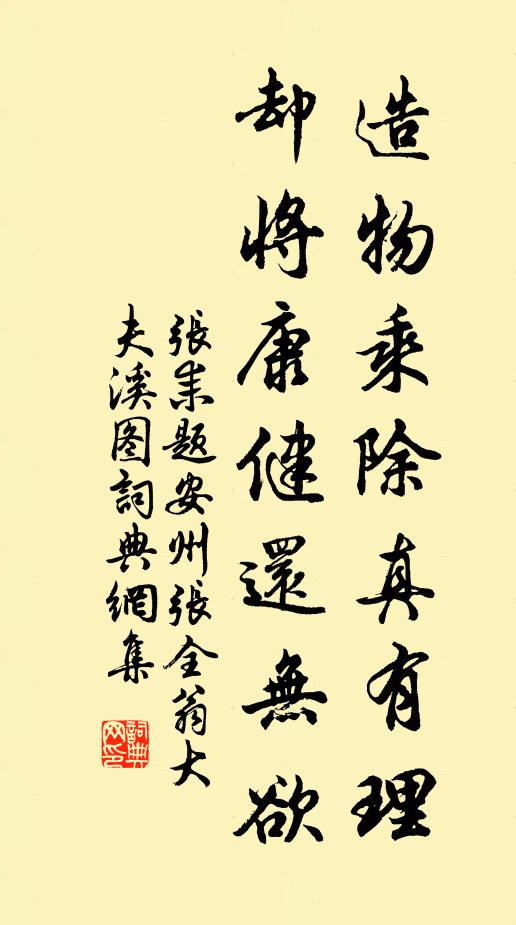 造物乘除真有理
却將康健還無欲
張耒題安州張全翁大
夫溪图詞典網集
詞典
网印